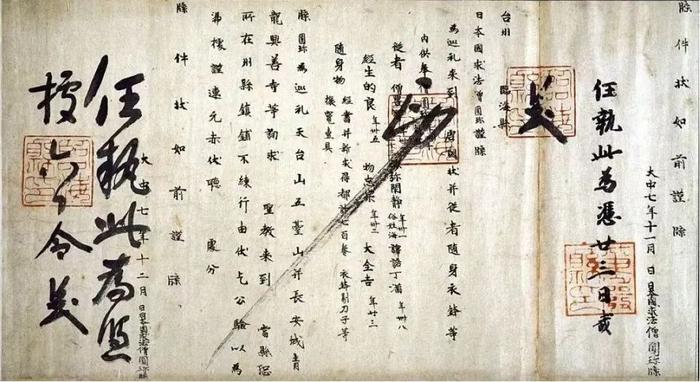 牒件狀如前謹牒
大中七年十一月 日日本國求法僧圓珍牒
任執此為憑廿三日
台州 臨海縣
日本國求法僧圓珍謹牒
為巡礼來到 唐國狀并從者隨身衣鉢等
內供奉
從者 僧 沙弥閑靜 年卅一 俗姓海 譯語丁滿 年卌八
經生的良 年卅五 物忠宗 年卅二 大全吉 年廿三
隨身物 經書并新求得都計七百卷 衣鉢剔刀子等
牒圓珍為巡礼天台山五臺山并長安城青
龍興善寺等詢求 聖教來到 當縣恐
所在州縣鎮鋪不練行由伏乞公驗以為
憑據謹連元赤伏聽 處分
牒件狀如前謹牒
大中七年十二月 日日本國求法僧圓珍牒
任執此為憑
據六日令